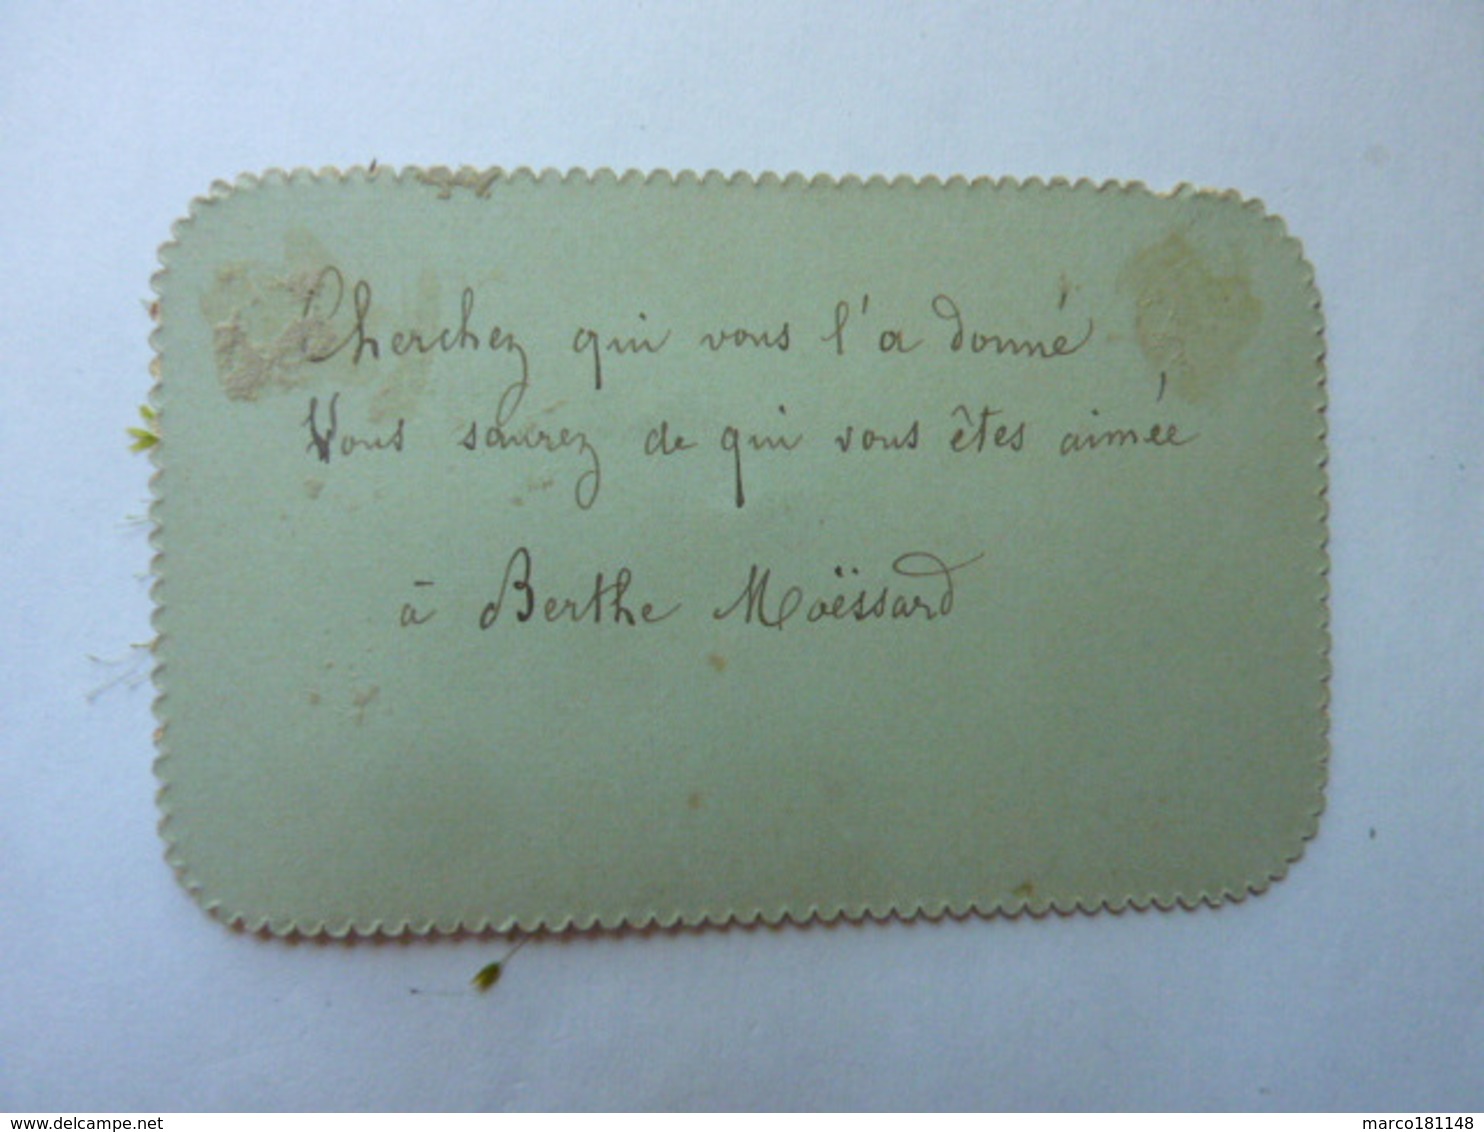 Cherchez qui vous l'a donné
Vous saurez de qui vous êtes aimée
à Berthe Moëssard
www.delcampe.net
marco181148